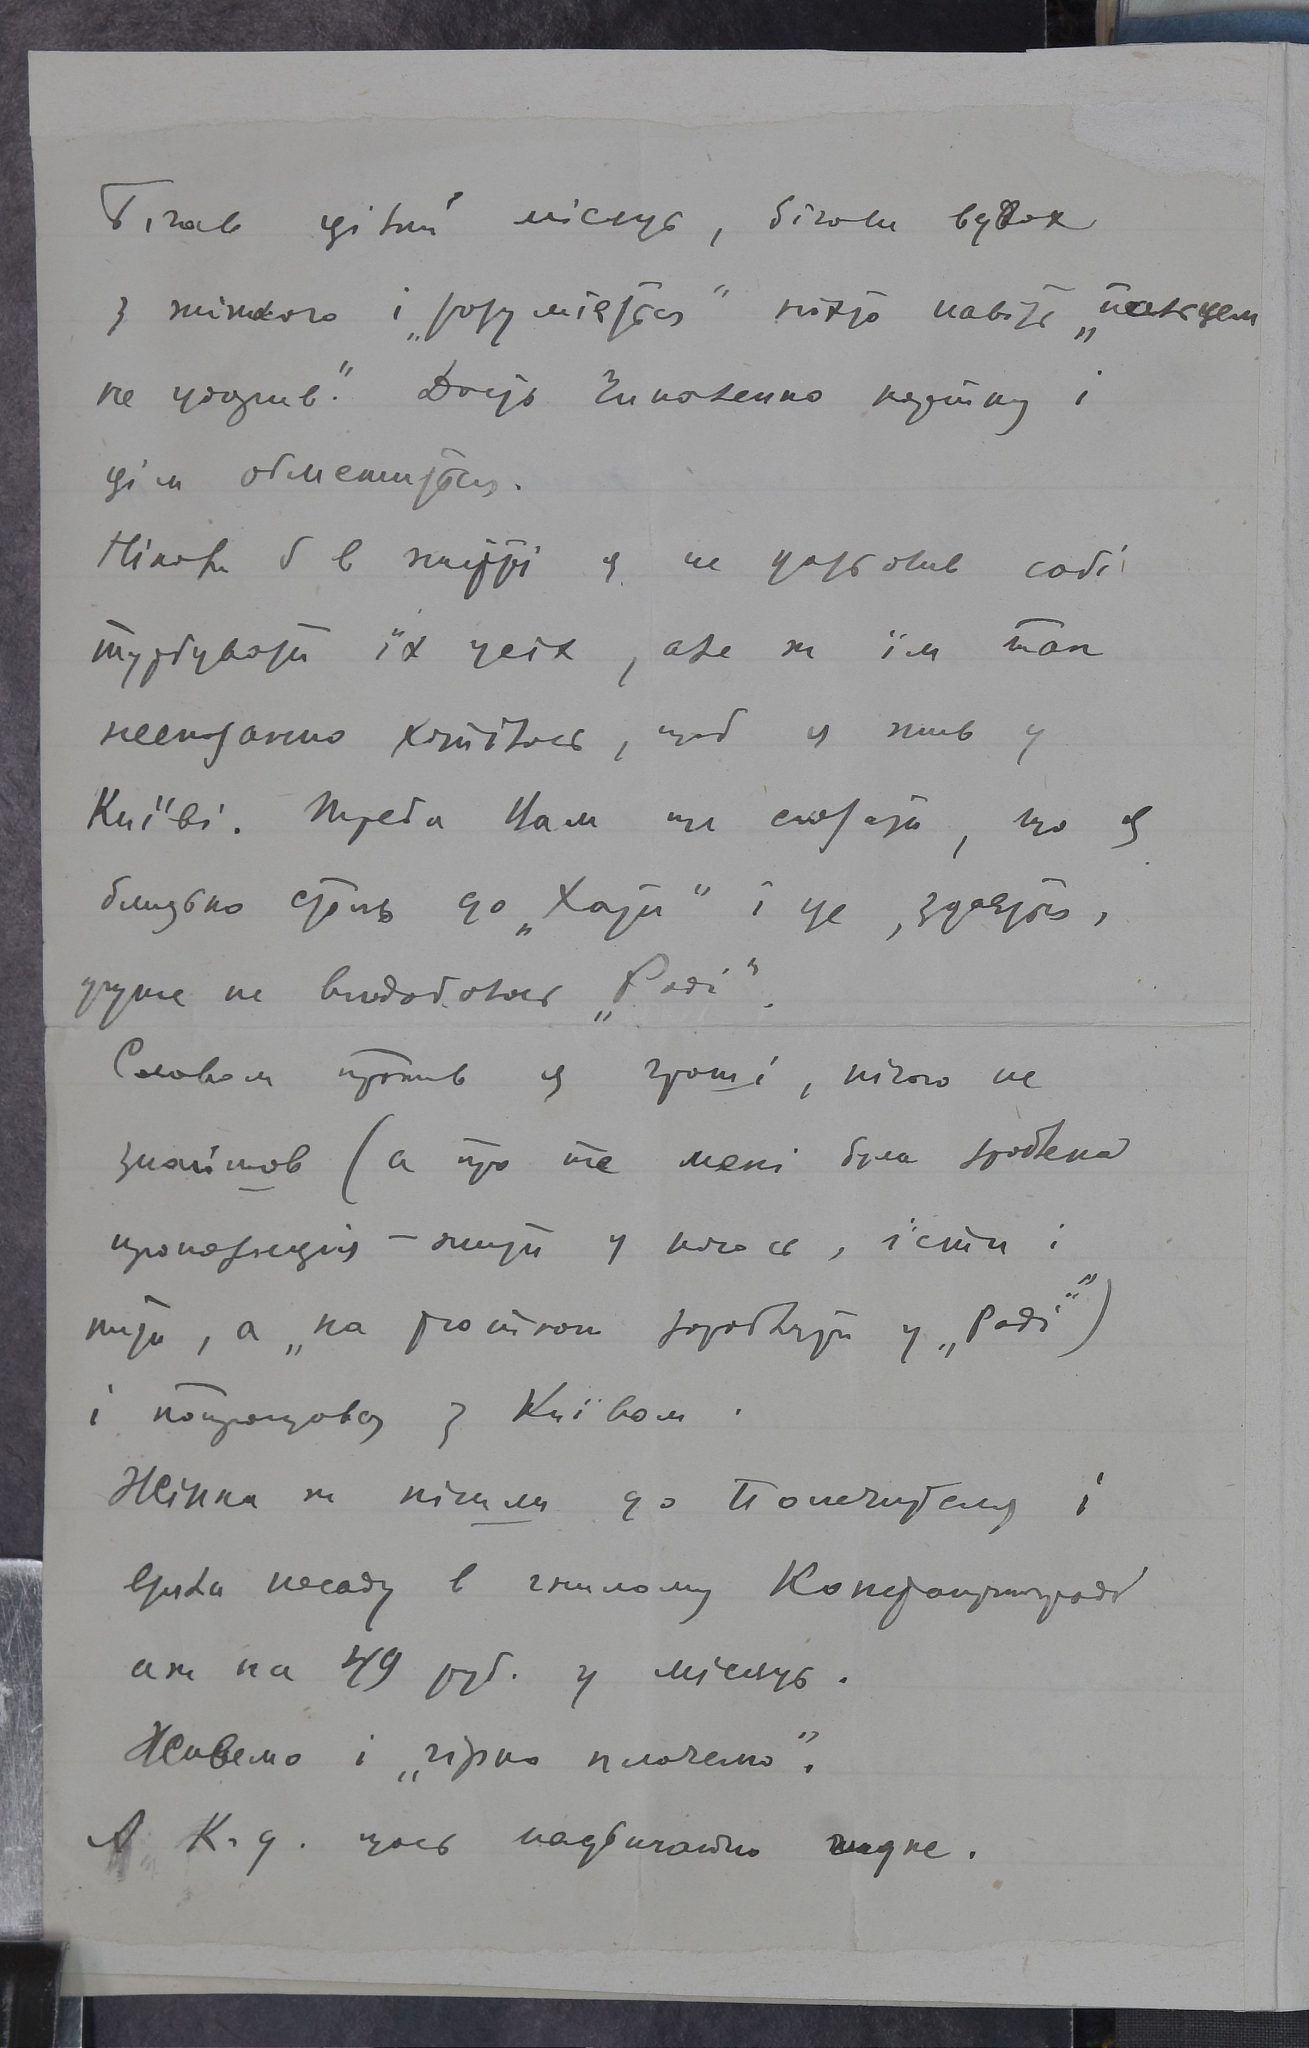 Бігав цілий місяць, бігали вкупі
з жінкою і „розуміється“ ніхто навіть „пальцем
не ударив“. Дасть Чикаленко картку і
цім обмежиться.
Ніколи б в життрі я не дозволив собі
турбувати їх усіх, але ж їм так
несказанно хотілось, щоб я жив у
Київі. Треба Вам ще сказати, що я
близько стояв до „Хати“ і це, здається,
дуже не вподобалось „Раді“.
Словом прожив я гроші, нічого не
знайшов (а про те мені була зроблена
пропозиція — жити у когось, їсти і
пити, а „на розтком заробляти у „Раді““)
і попрощався з Київом.
Жінка ж пішла до Попечителя і
взяла посаду в гнилому Констанстинограді
аж на 49 руб. у місяць.
Живемо і „гірко плачемо“.
А К-д. щось надзвичайно гидке.